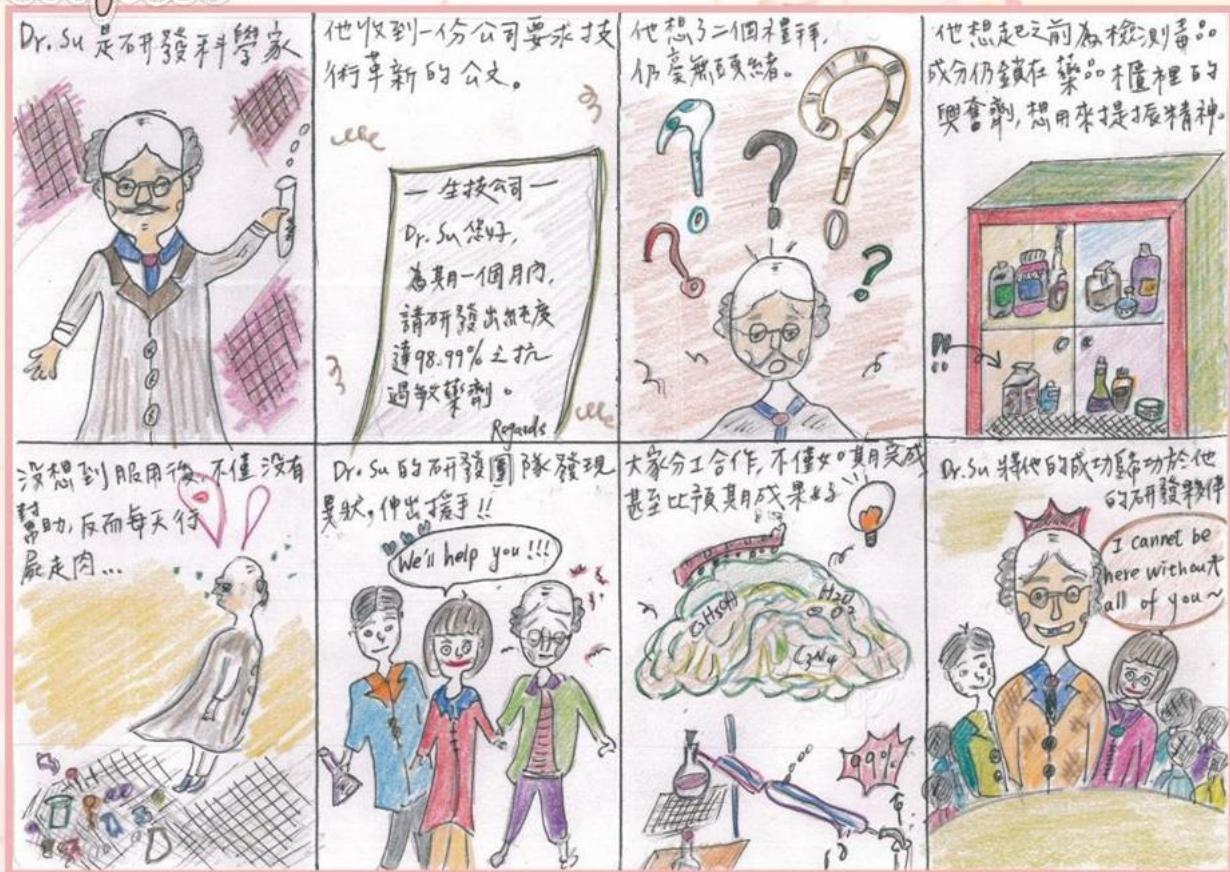 Dr. Su 是研發科學家
他收到一份公司要求技
術革新的公文。
一生技公司一
Dr. Su 您好,
為期一個月內,
請研發出純度
達98.99%之抗
過敏藥劑。
Regards
他想了二個禮拜,
仍毫無頭緒。
他想起之前為檢測毒品
成分仍鎖在藥品櫃裡的
興奮劑,想用來提振精神。
沒想到服用後,不僅沒有
幫助,反而每天行
屍走肉...
Dr. Su 的研發團隊發現
異狀,伸出援手!!
We'll help you !!!
大家分工合作,不僅如期完成
甚至比預期成果好
C2H5OH
H2O
C3N4
99%
Dr. Su 將他的成功歸功於他
的研發夥伴
I cannet be
here without
all of you~